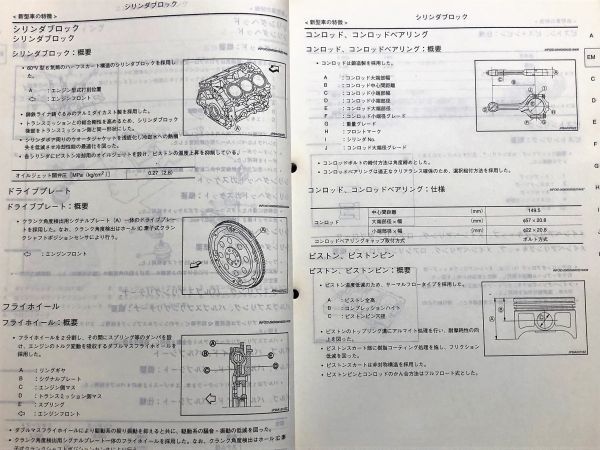 シリンダブロック
<新型車の特徴>
シリンダブロック
シリンダブロック
シリンダブロック：概要
• 60°V型6気筒のハーフスカート構造のシリンダブロックを採用した。
A ：エンジン型式打刻位置
⇦ ：エンジンフロント
• 鋳鉄ライナ鋳ぐるみのアルミダイカスト製を採用した。
• トランスミッションとの結合剛性を高めるため、シリンダブロック
後面をトランスミッション側と同一形状にした。
オイルジェット開弁圧 [MPa (kg/cm²)] 0.27 {2.8}
ドライブプレート
ドライブプレート：概要
• クランク角度検出用シグナルプレート（A）一体のドライブプレー
トを採用した。なお、クランク角度検出はホールIC素子式クラン
クシャフトポジションセンサにより行う。
⇦ ：エンジンフロント
フライホイール
フライホイール：概要
• フライホイールを2分割し、その間にスプリング等のダンパを設
け、エンジンのトルク変動を吸収するダブルマスフライホイールを
採用した。
A ：リングギヤ
B ：シグナルプレート
C ：エンジン側マス
D ：トランスミッション側マス
E ：スプリング
⇦ ：エンジンフロント
• ダブルマスフライホイールにより駆動系の振り振動を抑えると共に、駆動系の騒音・振動の低減を図った。
• クランク角度検出用シグナルプレート一体のフライホイールを採用した。なお、クランク角度検出はホールIC素
子式クランクシャフトポジションセンサにより行う。
シリンダブロック
<新型車の特徴>
コンロッド、コンロッドベアリング
コンロッド、コンロッドベアリング：概要
• コンロッドは鍛造製を採用した。
A ：コンロッド大端部幅
B ：コンロッド中心間距離
C ：コンロッド小端部幅
D ：コンロッド小端部径
E ：コンロッド大端部径
F ：コンロッド小端部径グレード
G ：重量グレード
H ：フロントマーク
I ：シリンダNo.
J ：コンロッド大端部径グレード
• コンロッドボルトの締付方法は角度締めとした。
• コンロッドベアリングは適正なクリアランス確保のため、選択組付方法を採用した。
コンロッド、コンロッドベアリング：仕様
コンロッド 中心間距離 [mm] 149.5
大端部径×幅 [mm] φ57×20.8
小端部径×幅 [mm] φ22×20.8
コンロッドベアリングキャップ取付方式 ボルト方式
ピストン、ピストンピン
ピストン、ピストンピン：概要
• ピストン温度低減のため、サーマルフロータイプを採用した。
A ：ピストン全高
B ：コンプレッションハイト
C ：ピストンピン穴径
• ピストンのトップリング溝にアルマイト処理を行い、耐摩耗性の向
上を図った。
• ピストンスカート部に樹脂コーティング処理を施し、フリクション
低減を図った。
• ピストンスカートは非対称構造を採用した。
• ピストンピンとコンロッドのかん合方法はフルフロート式とした。
A
EM
C
D
E